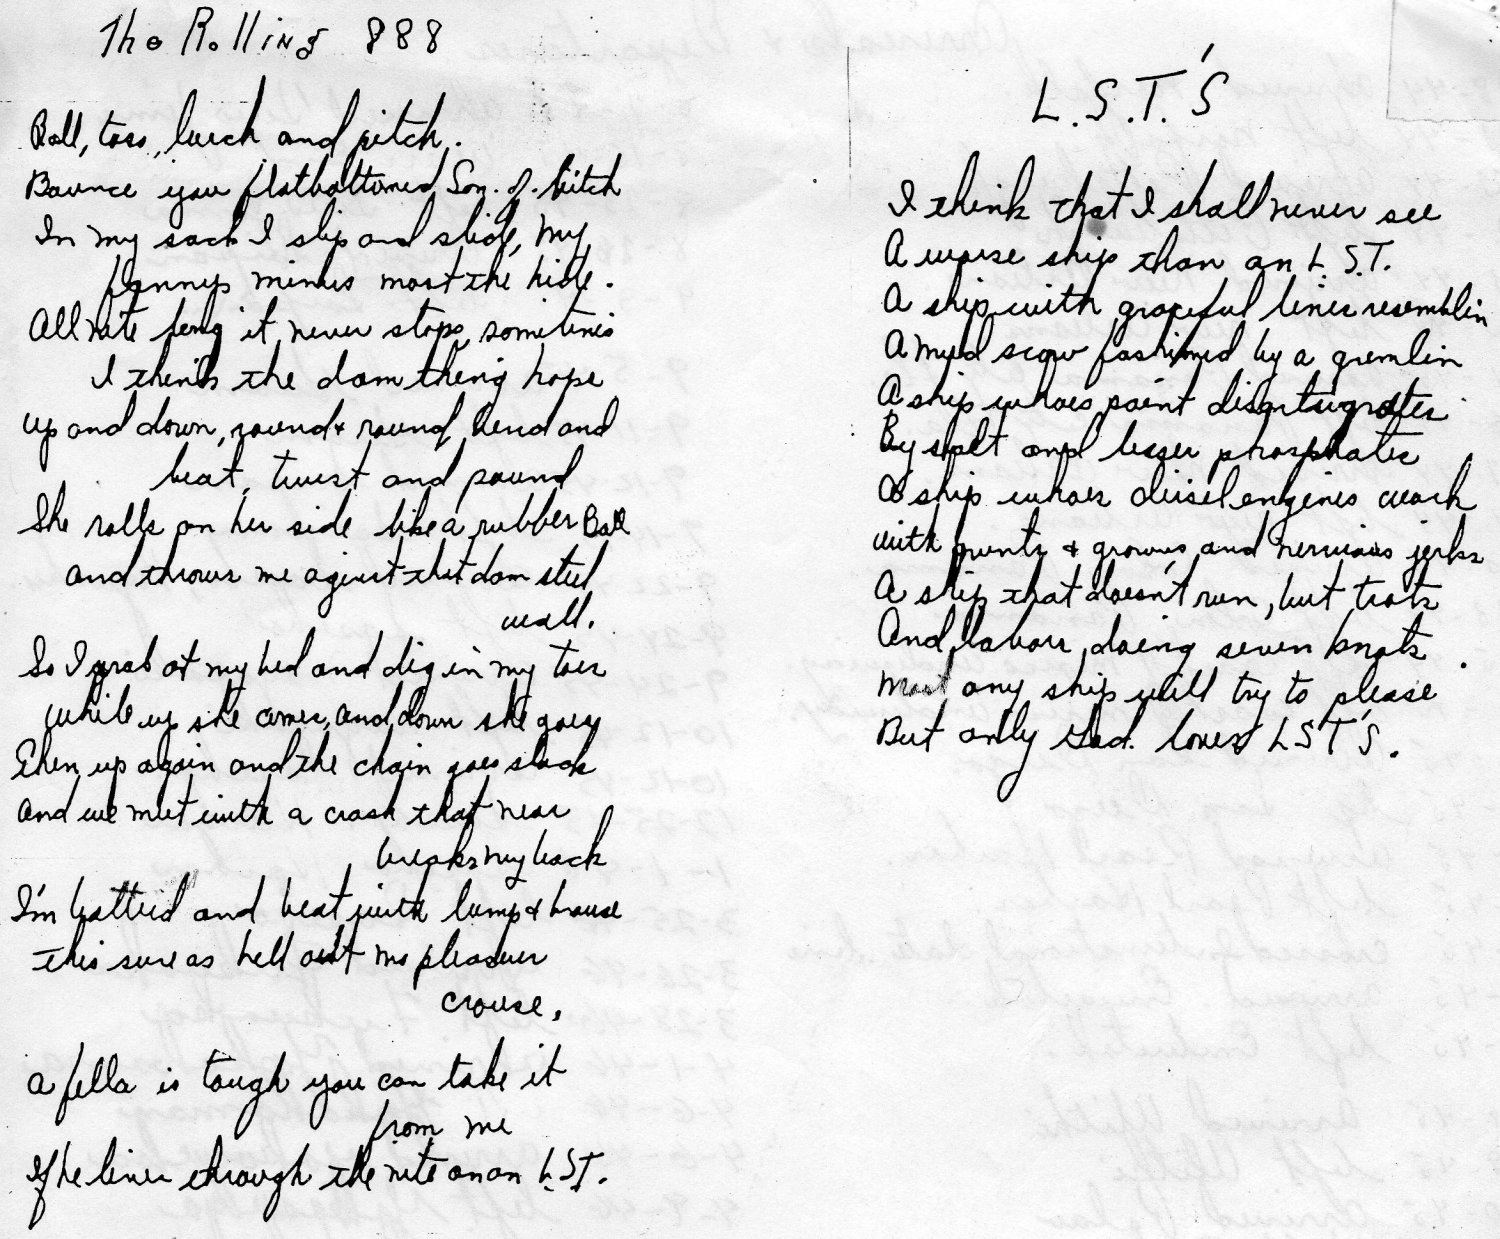 The Rolling 888
Roll, toss, lurch and pitch.
Bounce you flatbottomed Son. of. bitch
In my sack I slip and slide, my
fannys minus most the hide.
All nite long it never stops, sometimes
I think the dam thing hops
up and down, round & round, bend and
beat, twist and pound
She rolls on her side like a rubber Ball
and throws me against that dam steel
wall.
So I grab at my bed and dig in my toes
while up she comes, and down she goes
Then up again and the chain goes slack
and we meet with a crash that near
breaks my back
I'm batterd and beat with lump & bruse
this sure as hell aint no pleasure
crouse,
a fella is tough you can take it
from me
If he lives through the nite on an L.S.T.
L.S.T.'S
I think that I shall never see
A worse ship than an L.S.T.
A ship with graceful lines resemblin
A mud scow fashioned by a gremlin
A ship whoes paint
By salt and lesser phosphates
A ship whoes diesel engines work
with grunts & growns and nervious jerks
A ship that doesn't run, but trots
And labors, doing seven knots.
Most any ship will try to please
But only God. loves L S T'S.